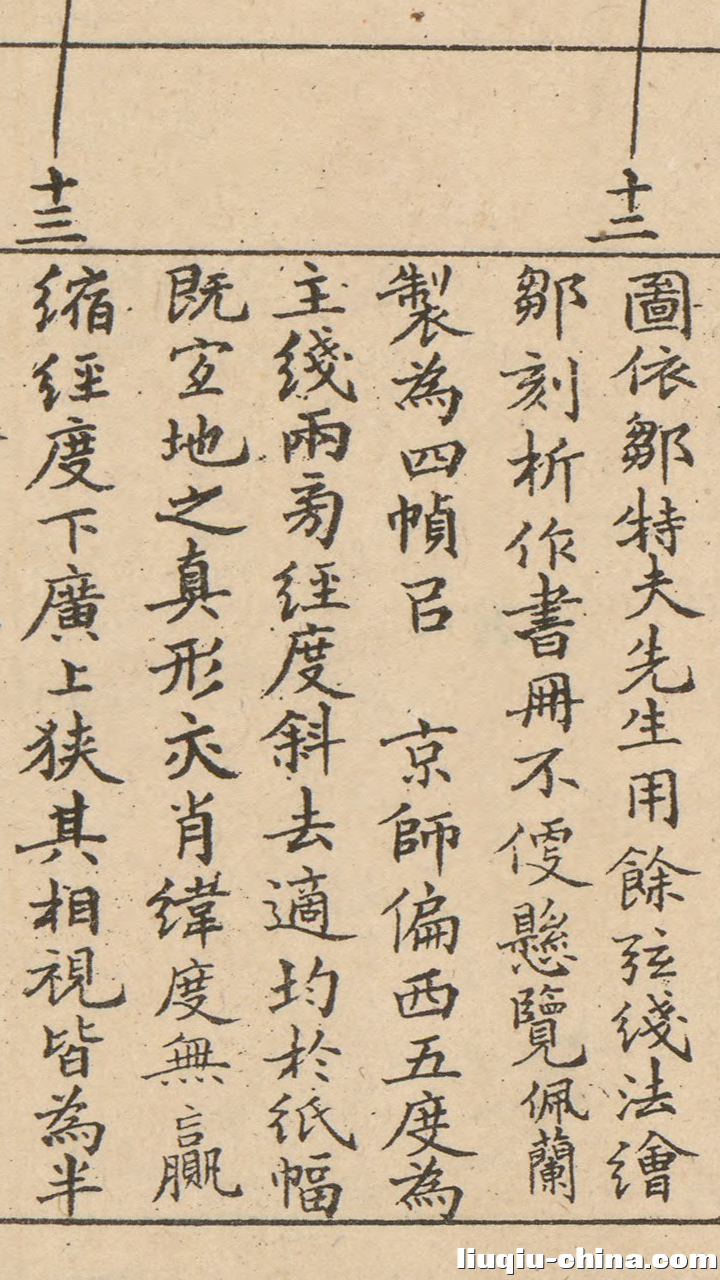 十二
十三
圖依鄒特夫先生用餘弦綫法繪
鄒刻析作書冊不便懸覽佩蘭
製為四幀㠯 京師偏西五度為
主綫兩旁經度斜去適均於紙幅
既宜地之真形亦肖緯度無贏
縮經度下廣上狹其相視皆為半
liuqiu-china.com